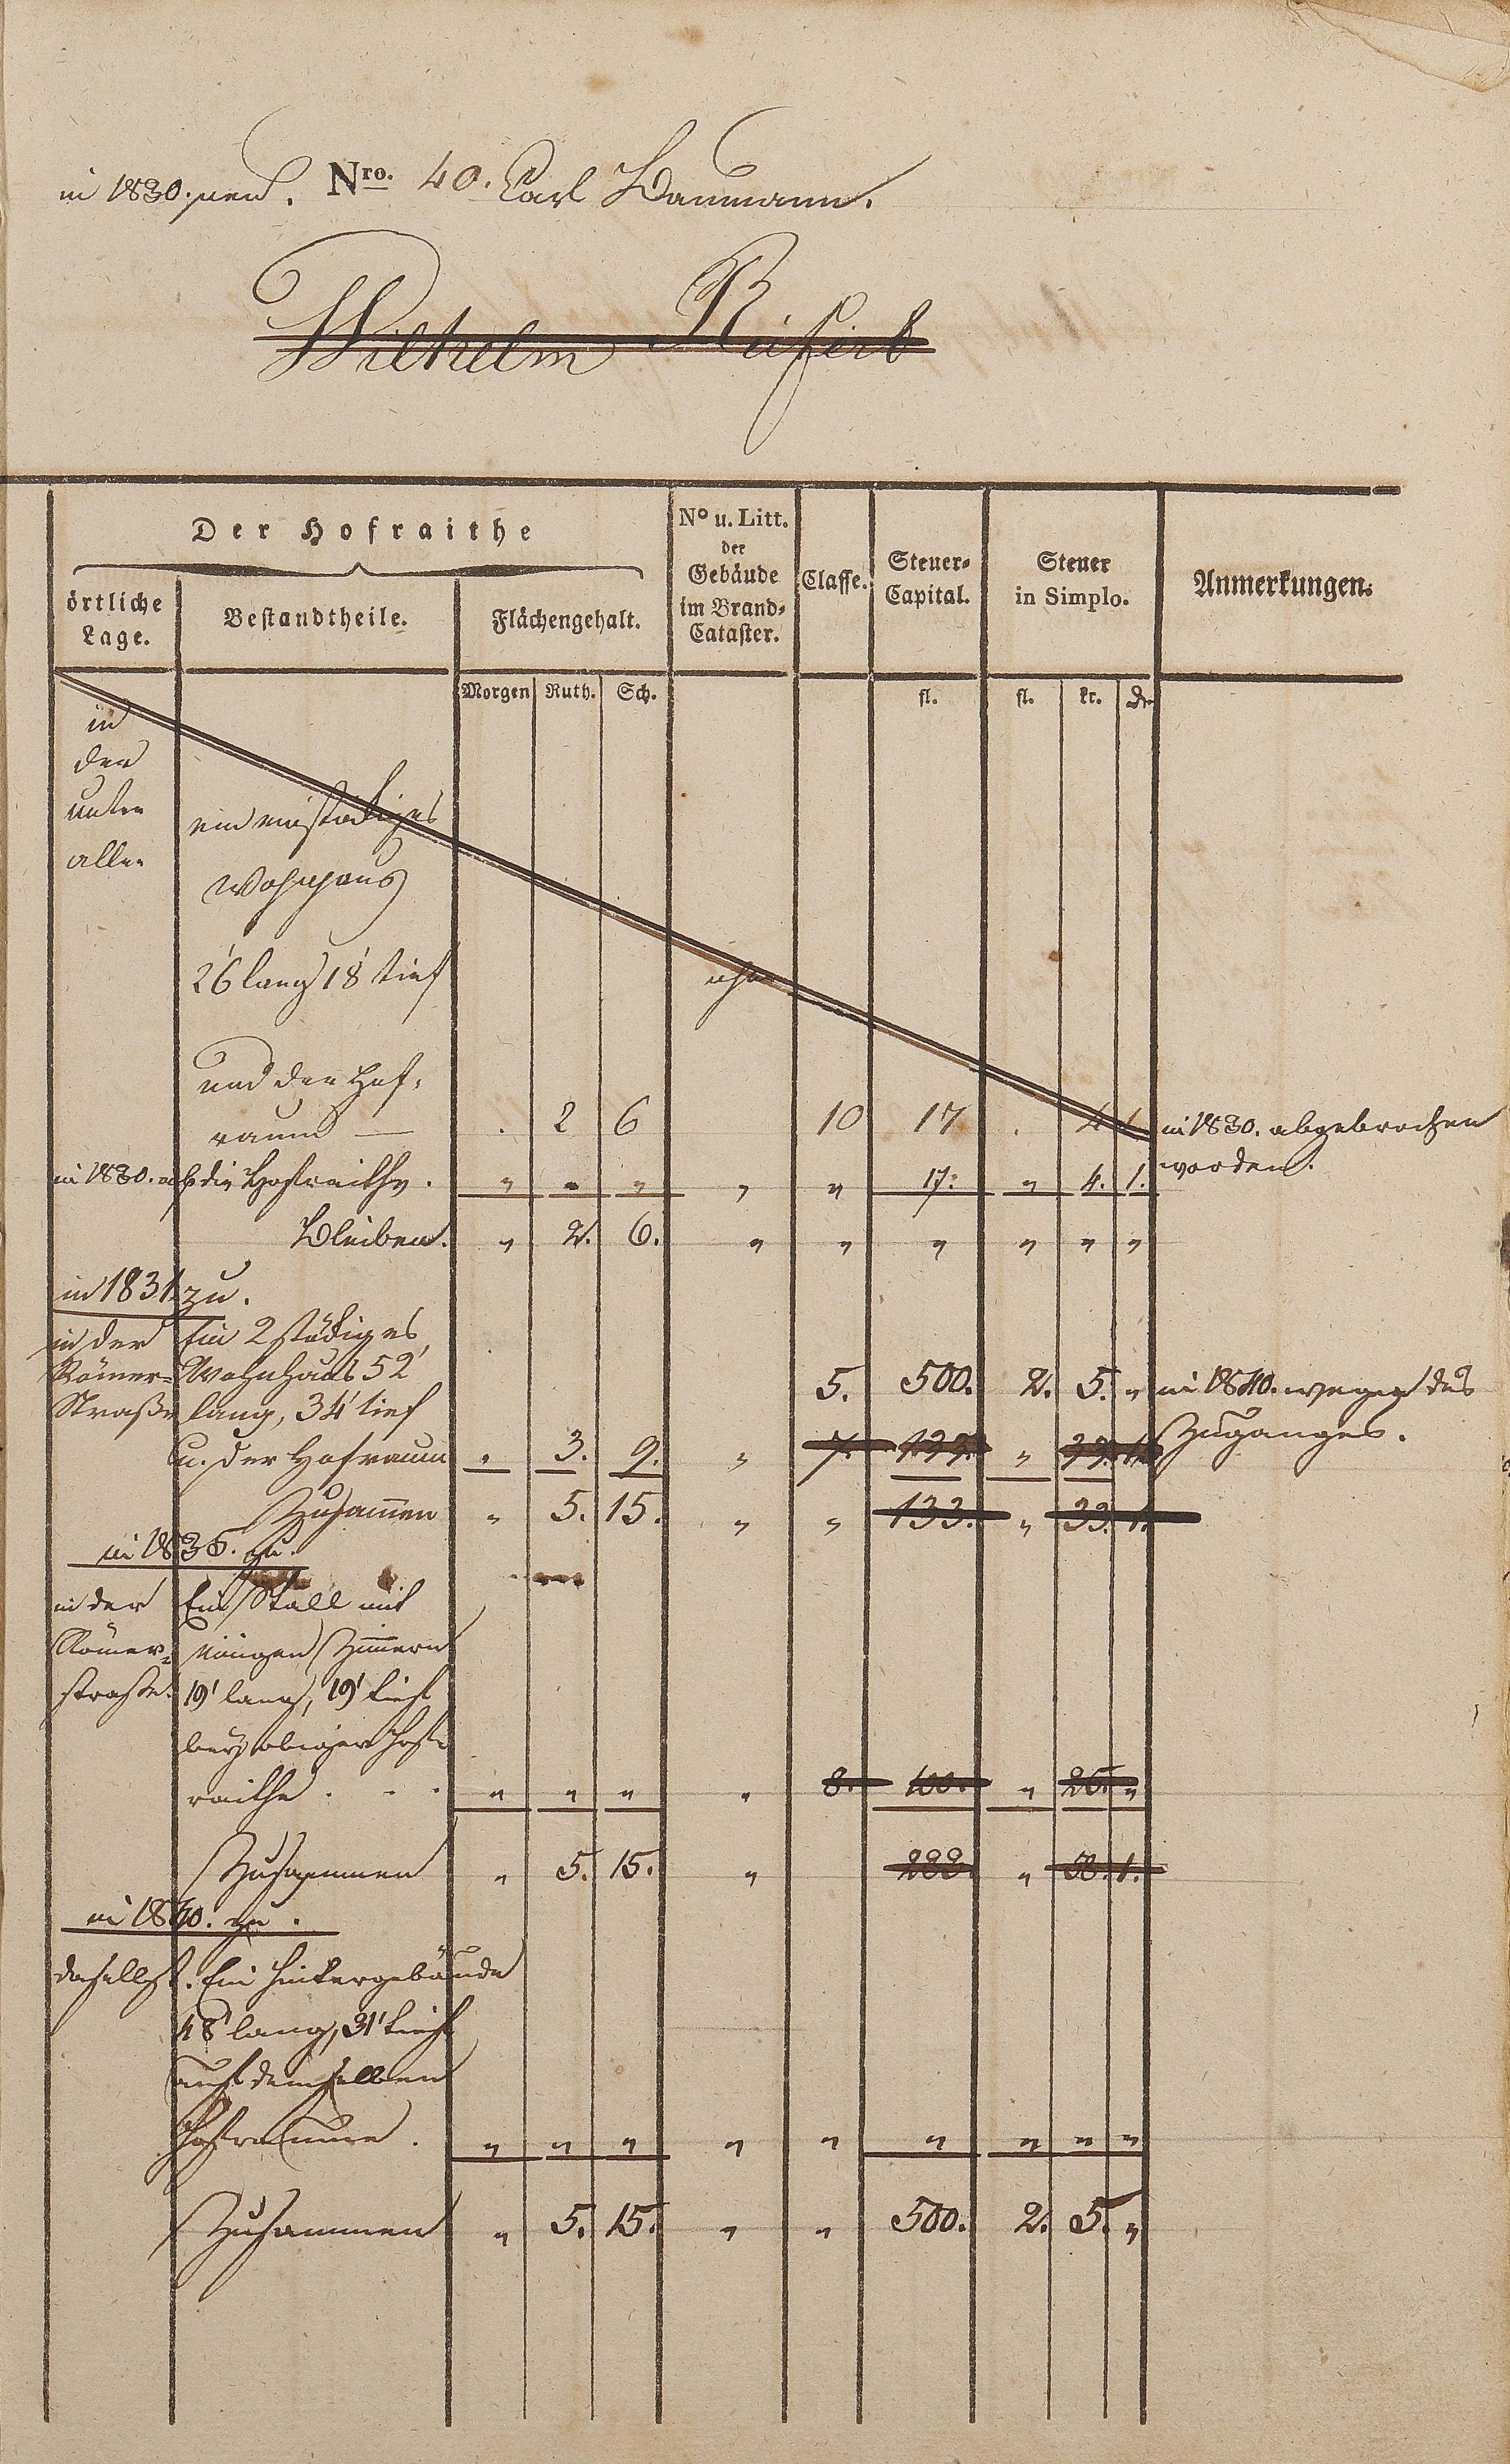 in 1830. neu. Nro. 40. Carl Baumann.
Wilhelm
Der Hofraithe
No u. Litt. der Gebäude im Brand-Cataster.
Classe.
Steuer-Capital.
Steuer in Simplo.
Anmerkungen.
örtliche Lage.
Bestandtheile.
Flächengehalt.
Morgen Ruth. Sch. fl. fl. kr.
in
der
unter
allee
ein einstökiges
Wohnhaus
26' lang 18' tief
und der Hof-
raum — . 2 6 10 17 . 4 1 in 1830. abgebrochen
worden.
in 1830. ab die Hofreithe. " " " " " 17. " 4. 1.
Bleiben. " 2. 6. " " " " " "
in 1831. zu.
in der Ein 2 stökiges
Römer- Wohnhaus 52'
Straße lang, 34' tief 5. 500. 2. 5. " in 1840. wegen des
Zuganges.
u. der Hofraum " 3. 9. " 7. 133. " 33. 1.
Zusamen " 5. 15. " " 133. " 33. 1.
in 1836. zu.
in der Ein Stall mit
Römer- einigen Zimern
straße. 19' lang, 19' tief
bey obiger Hof-
raithe . . . " " " " 8. 100. " 25. "
Zusammen " 5. 15. " 233. " 58. 1.
in 1840. zu.
daselbst. Ein Hintergebäude
48' lang, 31' tief
auf demselben
Hofraume. " " " " " " " " "
Zusammen " 5. 15. " " 500. 2. 5. "